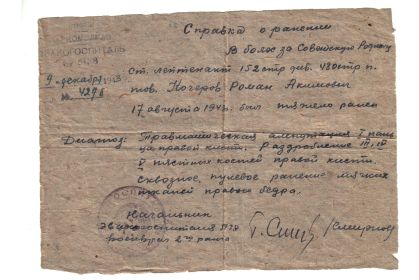 ЭВАКОГОСПИТАЛЬ
9 декабря 1943
№ 4296
Справка о ранении
В боях за Советскую Родину
ст. лейтенант 152 стр. див. 480 стр. п.
тов. Кочеров Роман Акимович
17 августа 1943 был тяжело ранен
Диагноз: Травматическая ампутация I паль
ца правой кисти. Раздробление III, IV
V пястных костей правой кисти.
Сквозное, пулевое ранение мягких
тканей правого бедра.
Начальник
Эвакогоспиталя
военврач 2го ранга
/Смирнов/